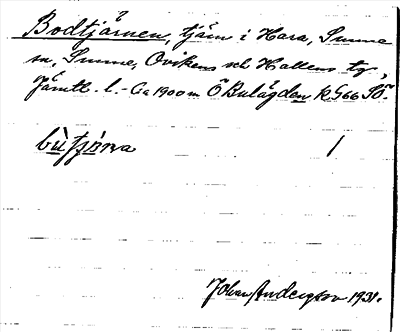 Bodtjärnen, tjärn i Hara, Sunne
sn, Sunne, Ovikens och Hallens tg,
Jämtl. l. - Ca 1900 m Ö Bulägden k. 566 SÖ.
bùtjɔ̀ɳa 1
Johan Anderson 1931.